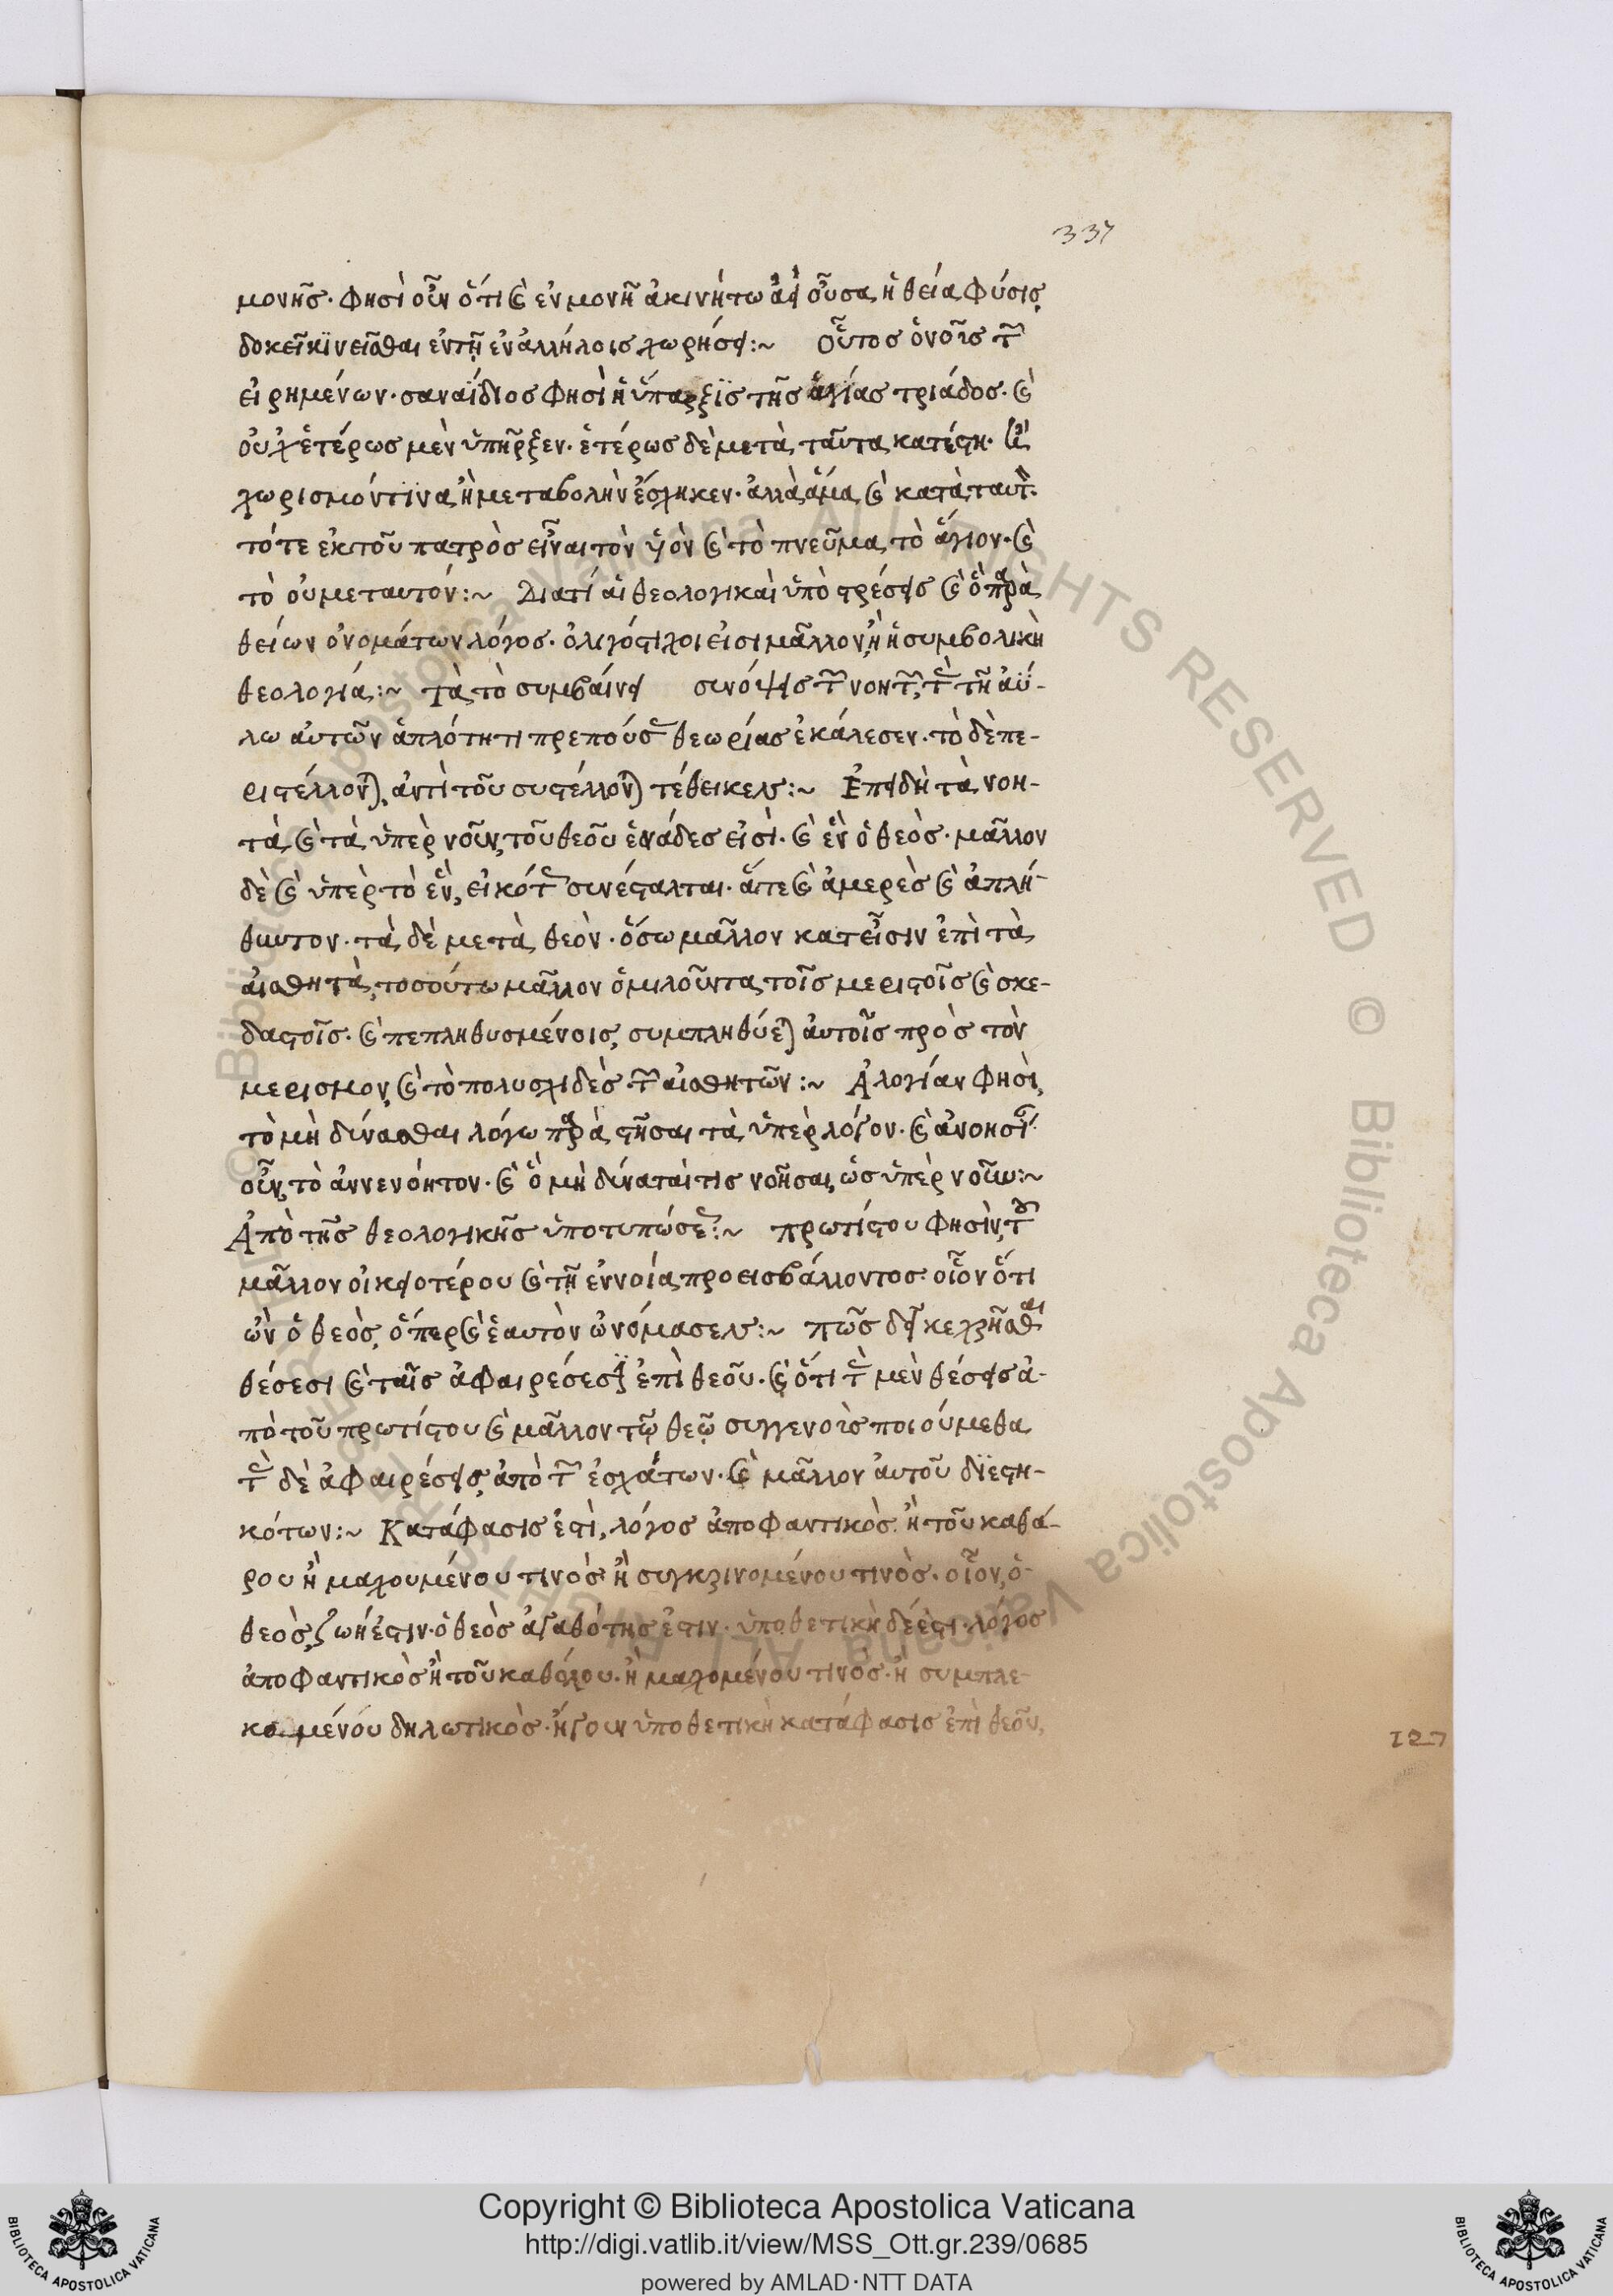 337
μονῆς· φησὶ οὖν ὅτι καὶ ἐν μονῆ ἀκινήτω ἀεὶ οὖσα ἡ θεία φύσις
δοκεῖ κϊνεῖσθαι ἐν τῆ ἐν ἀλλήλοις χωρήσει:~ οὗτος ὁ νοῦς τῶν
εἰρημένων· συναΐδιος φησὶ ἡ ὕπαρξϊς τῆς ἁγίας τριάδος· καὶ
οὐχ ἑτέρως μὲν ὑπῆρξεν· ἑτέρως δὲ μετὰ ταῦτα κατέστη· ἢ
χωρισμόν τϊνα ἢ μεταβολὴν ἔσχηκεν· ἀλλὰ ἅμα καὶ κατὰ ταυτὸν
τό τε ἐκ τοῦ πατρὸς εἶναι τὸν υἱὸν καὶ τὸ πνεῦμα τὸ ἅγιον· καὶ
τὸ οὐ μεταυτόν:~ Διατί αἱ θεολογικαὶ ὑποτρέσεις καὶ ὁ παρὰ
θείων ὀνομάτων λόγος· ὀλιγόστιχοι εἰσι μᾶλλον, ἢ ἡ συμβολικὴ
θεολογία:~ Τὰ τὸ συμβαίνει συνόψεις τῶν νοητῶν, τὰς τῆ ἀΰ-
λω αὐτῶν ἁπλότητι πρεπούσας θεωρίας ἐκάλεσεν· τὸ δὲ πε-
ριστέλλονται, ἀντὶ τοῦ συστέλλονται τέθεικεν:~ Ἐπειδὴ τὰ νοη-
τὰ καὶ τὰ ὑπὲρ νοῦν, τοῦ θεοῦ ἑνάδες εἰσὶ· καὶ ἓν ὁ θεὸς· μᾶλλον
δὲ καὶ ὑπὲρ τὸ ἓν, εἰκότως συνέσταλται· ἅτε καὶ ἀμερὲς καὶ ἀπλή-
θυντον· τὰ δὲ μετὰ θεὸν· ὅσω μᾶλλον κατεῖσιν ἐπὶ τὰ
αἰσθητὰ, τοσούτω μᾶλλον ὁμιλοῦντα τοῖς μεριστοῖς καὶ σκε-
δαστοῖς· καὶ πεπληθυσμένοις, συμπληθύεται αὐτοῖς πρὸς τὸν
μερισμον, καὶ τὸ πολυσχιδὲς τῶν αἰσθητῶν:~ Ἀλογίαν φησὶ,
τὸ μὴ δύνασθαι λόγω παραστῆσαι τὰ ὑπὲρ λόγον· καὶ ἀνοησίαν
οὖν, τὸ ἀννενόητον· καὶ ὃ μὴ δύναταί τις νοῆσαι, ὡς ὑπὲρ νοῦν:~
Ἀπὸ τῆς θεολογικῆς ὑποτυπώσεως:~ πρωτίστου φησὶν, τοῦ
μᾶλλον οἰκειοτέρου καὶ τῆ ἐννοία προεισβάλλοντος· οἷον ὅτι
ὢν ὁ θεὸς, ὅπερ καὶ ἑαυτὸν ὠνόμασεν:~ πῶς δεῖ κεχρῆσθαι
θέσεσι καὶ ταῖς ἀφαιρέσεσϊ ἐπὶ θεοῦ· καὶ ὅτι τὰς μὲν θέσεις ἀ-
πὸ τοῦ πρωτίστου καὶ μᾶλλον τῷ θεῷ συγγενοῦς ποιούμεθα
τὰς δὲ ἀφαιρέσεις, ἀπὸ τῶν ἐσχάτων· καὶ μᾶλλον αὐτοῦ διεστη-
κότων:~ Κατάφασις ἐστὶ, λόγος ἀποφαντικὸς· ἢ τοῦ καθά-
ρου ἢ μαχουμένου τινὸς ἢ συγκρινομένου τινὸς· οἷον, ὁ
θεὸς, ζωή ἐστιν· ὁ θεὸς ἀγαθότης ἐστιν· ὑποθετικὴ δέ ἐστι· λόγος
ἀποφαντικὸς ἢ τοῦ καθόλου· ἢ μαχομένου τινὸς· ἢ συμπλε-
κομένου δηλωτικὸς· ἤγουν ὑποθετικὴ κατάφασις ἐπὶ θεοῦ,
127
© Biblioteca Apostolica Vaticana ALL RIGHTS RESERVED
Copyright © Biblioteca Apostolica Vaticana
http://digi.vatlib.it/view/MSS_Ott.gr.239/0685
powered by AMLAD·NTT DATA
BIBLIOTECA APOSTOLICA VATICANA
BIBLIOTECA APOSTOLICA VATICANA